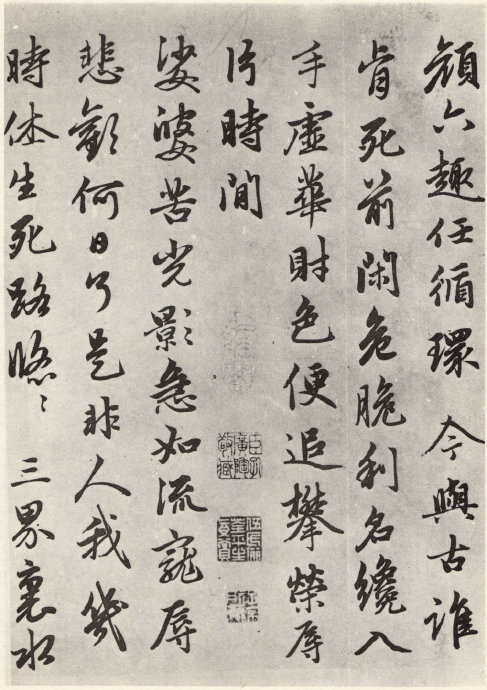 顧六趣任循環 今與古誰
肯死前閑危脆利名纔入
手虛華財色便追攀榮辱
片時間
娑婆苦光影急如流寵辱
悲歡何日了是非人我幾
時休生死路悠〻 三界裏水